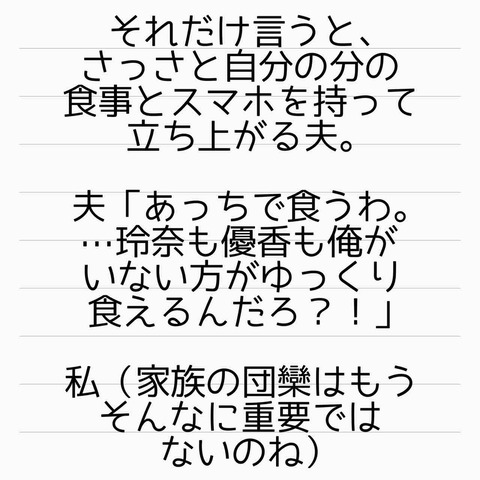 それだけ言うと、
さっさと自分の分の
食事とスマホを持って
立ち上がる夫。
夫「あっちで食うわ。
…玲奈も優香も俺が
いない方がゆっくり
食えるんだろ？！」
私（家族の団欒はもう
そんなに重要では
ないのね）